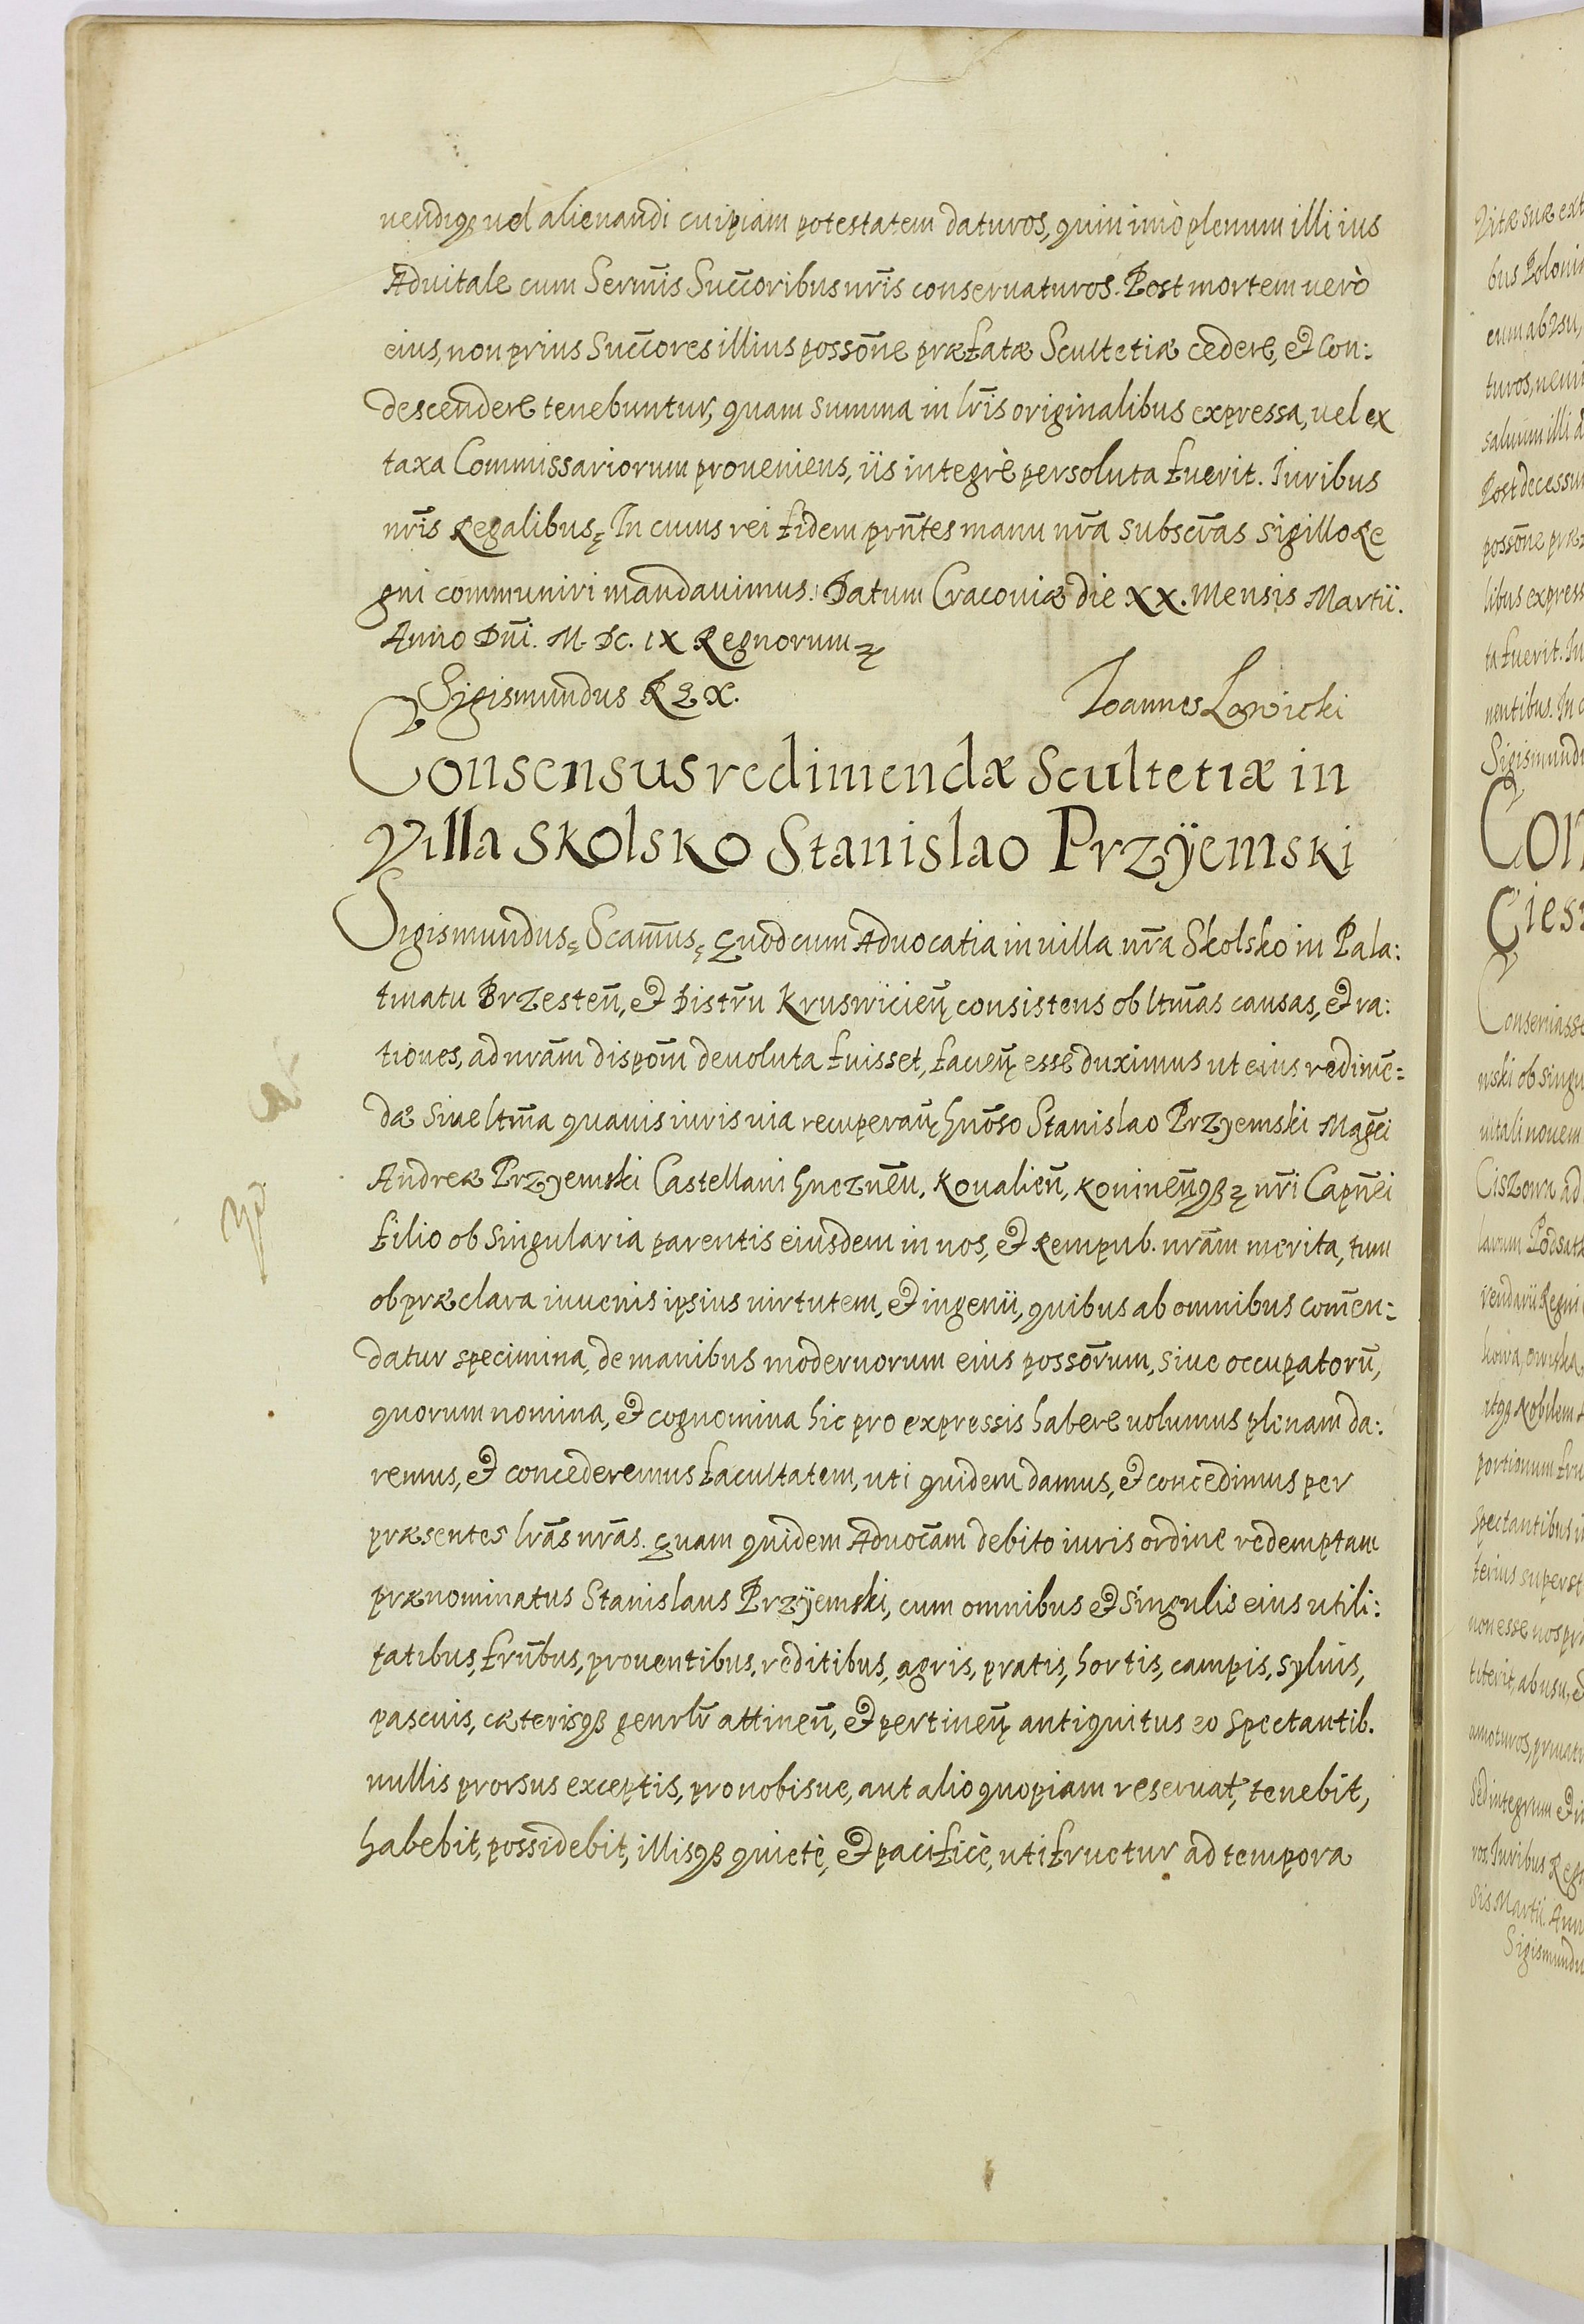 uendiq₃ uel alienandi cuipiam potestatem daturos, quin imò plenum illi ius
Aduitale cum Sermīs Succ̄oribus nr̄is conseruaturos. Post mortem uerò
eius, non prius Succ̄ores illius possōne præfatæ Scultetiæ cedere, et Con:
descendere tenebuntur, quam summa in lr̄is originalibus expressa, uel ex
taxa Commissariorum proueniens, iis integrè persoluta fuerit. Iuribus
nr̄is Regalibus ꝛ In cuius rei fidem prn̄tes manu nr̄a subscr̄as sigillo Re
gni communiri mandauimus. Datum Cracouiæ die XX. Mensis Martii.
Anno Dn̄i. M. DC. IX Regnorum ꝛ
Sigismundus REX.
Ioannes Lowicki
Consensus redimendæ Scultetiæ in
Villa Skolsko Stanislao Przÿemski
Sigismundus ꝛ Scām̄us ꝛ Quod cum Aduocatia in uilla nr̄a Skolsko in Pala:
tinatu Brzesten̄, et Distr̄u Kruswicien̄ consistens ob ltm̄as causas, et ra:
tiones, ad nrām dispōm̄ deuoluta fuisset, facien̄ esse duximus ut eius redimē:
dæ siue ltm̄a quauis iuris uia recuperan̄ Gnōso Stanislao Przyemski Mag̃ci
Andreæ Przyemski Castellani Gneznēn, Koualien̄, Koninen̄q₃ ꝛ nr̄i Capn̄ei
filio ob singularia parentis eiusdem in nos, et Rempub. nrām merita, tum
ob præclara iuuenis ipsius uirtutem, et ingenii, quibus ab omnibus com̄en:
datur specimina, de manibus modernorum eius possōrum, siue occupatorū,
quorum nomina, et cognomina hic pro expressis habere uolumus plenam da:
remus, et concederemus facultatem, uti quidem damus, et concedimus per
præsentes lrās nrās. Quam quidem Aduocām debito iuris ordine redemptam
prænominatus Stanislaus Przÿemski, cum omnibus et singulis eius utili:
tatibus, frūbus, prouentibus, reditibus, agris, pratis, hortis, campis, syluis,
pascuis, cæterisq₃ genrlr̄ attinen̄, et pertinen̄ antiquitus eo spectantib.
nullis prorsus exceptis, pro nobisue, aut alio quopiam reseruat̄, tenebit,
habebit, possidebit, illisq₃ quietè, et pacificè, uti fruetur ad tempora